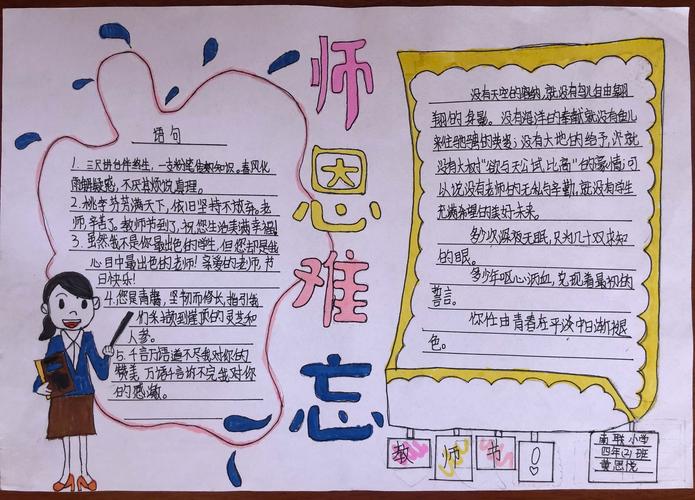 师恩难忘
语句
1. 三尺讲台伴终生，一支粉笔传知识。春风化
雨解疑惑，不厌其烦说真理。
2. 桃李芬芳满天下，依旧坚持不放弃。老
师，辛苦了。教师节到了，祝您生活美满幸福
3. 虽然我不是你最出色的学生，但您却是我
心目中最出色的老师！亲爱的老师，节
日快乐！
4. 您是青藤，坚韧而修长，指引我
们采撷到崖顶的灵芝和
人参。
5. 千言万语道不尽我对你的
赞美，万语千言诉不完我对你
的感激。
没有天空的，就没有鸟儿自由翱
翔的身影。没有海洋的奉献就没有鱼儿
来往驰骋的英姿；没有大地的给予，就
没有大树“欲与天公试比高”的豪情；可
以说没有老师的无私与辛勤，就没有学生
充满希望的美好未来。
多少次深夜无眠，只为几十双求知
的眼。
多少年呕心沥血，兑现着最初的
誓言。
你任由青春在平淡中日渐褪
色。
教师节！
南联小学
四年(2)班
黄思悦